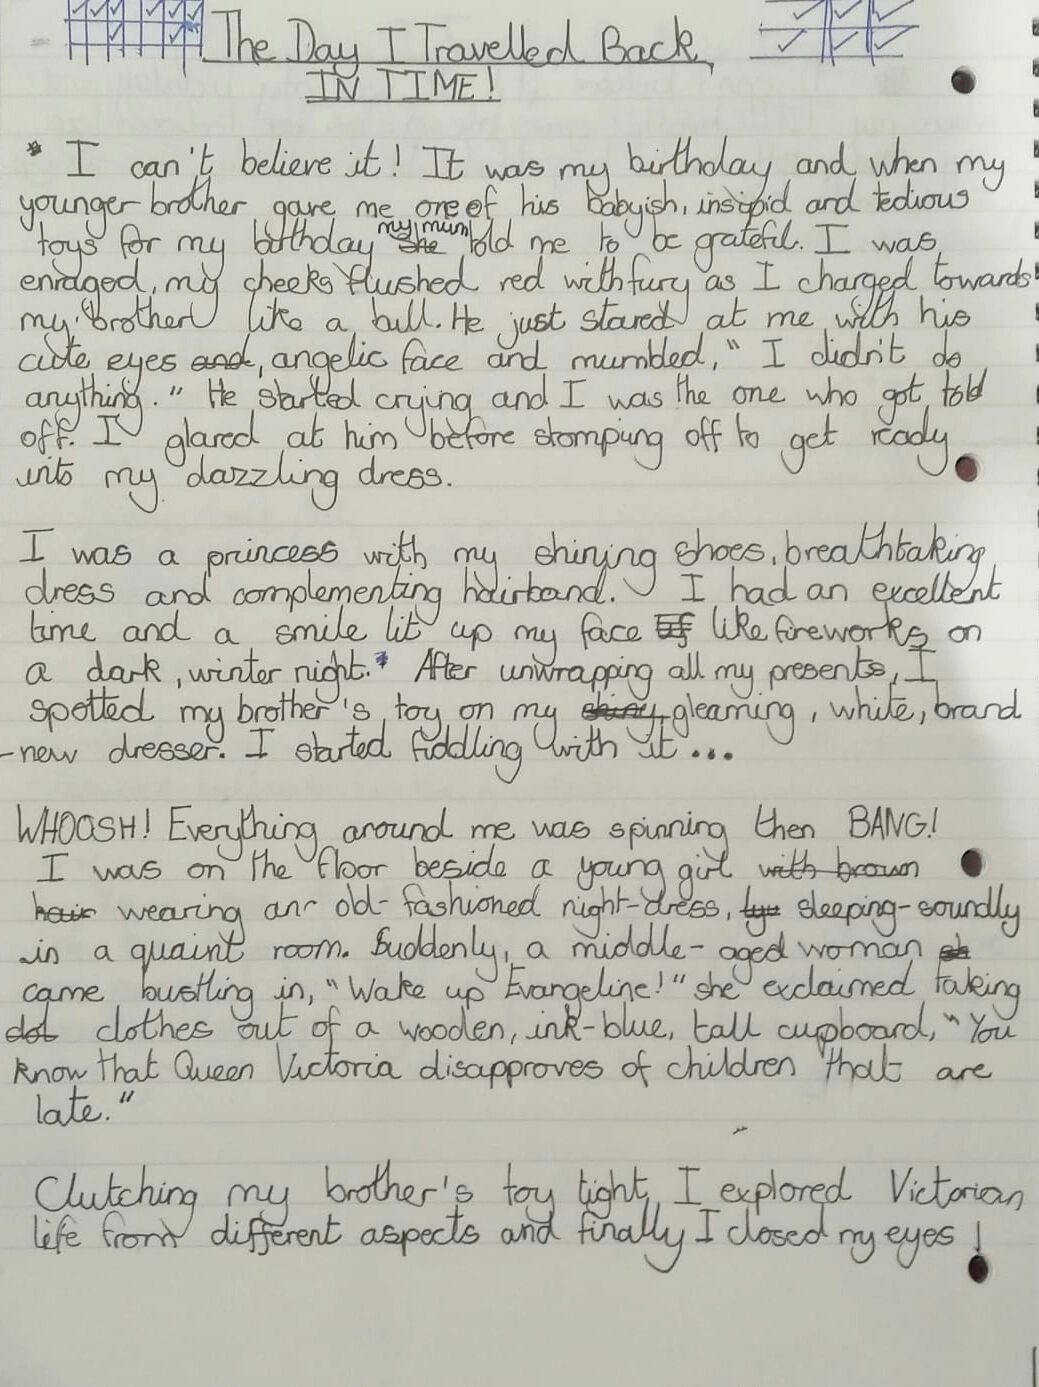 The Day I Travelled Back
IN TIME!
* I can't believe it! It was my birthday and when my
younger brother gave me one of his babyish, insipid and tedious
toys for my birthday my mum told me to be grateful. I was
enraged, my cheeks flushed red with fury as I charged towards
my brother like a bull. He just stared at me with his
cute eyes and, angelic face and mumbled, "I didn't do
anything." He started crying and I was the one who got told
off. I glared at him before stomping off to get ready
into my dazzling dress.
I was a princess with my shining shoes, breathtaking
dress and complementing hairband. I had an excellent
time and a smile lit up my face like fireworks on
a dark, winter night.* After unwrapping all my presents, I
spotted my brother's toy on my shiny, gleaming, white, brand
-new dresser. I started fiddling with it...
WHOOSH! Everything around me was spinning then BANG!
I was on the floor beside a young girl with brown
hair wearing an old-fashioned night-dress, sleeping-soundly
in a quaint room. Suddenly, a middle-aged woman
came bustling in, "Wake up Evangeline!" she exclaimed taking
clothes out of a wooden, ink-blue, tall cupboard, "You
know that Queen Victoria disapproves of children that are
late."
Clutching my brother's toy tight, I explored Victorian
life from different aspects and finally I closed my eyes!